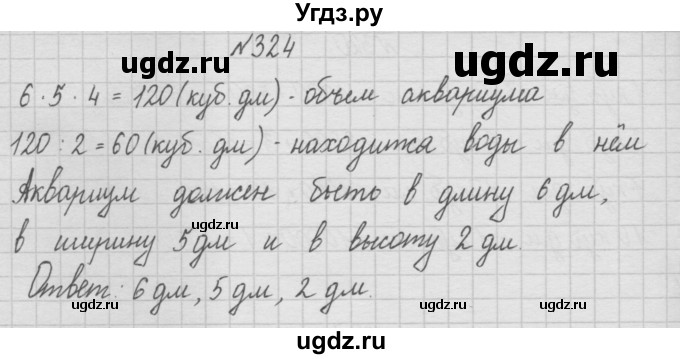 Угдз.ру
№324
ugdz.ru ugdz.ru
6·5·4=120(куб.дм)-объем аквариума
120:2=60(куб.дм)-находится воды в нём
ugdz.ru
Аквариум должен быть в длину 6дм,
ugdz.ru ugdz.ru
в ширину 5дм и в высоту 2 дм.
ugdz.ru
Ответ: 6дм, 5дм, 2 дм.
ugdz.ru ugdz.ru